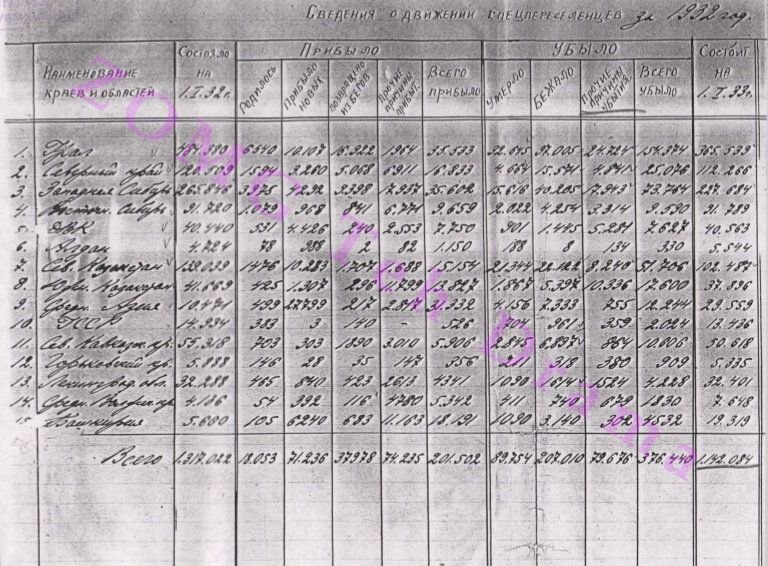 Сведения о движении спецпереселенцев за 1932 год.
Наименование краев и областей Состояло на 1.I.32г. Прибыло Убыло Состоит на 1.I.33г.
Родилось Прибыло новых Возвращено из бегов Прочие причины прибыт. Всего прибыло Умерло Бежало Прочие причины убытия Всего убыло
1. Урал 484.380 6540 10.107 16.922 1964 35.533 32.645 97.005 24.724 154.374 365.539
2. Северный край 120.509 1594 3.260 5.068 6911 16.833 4.664 15.571 4.841 25.076 112.266
3. Западная Сибирь 265.846 3975 4292 9398 17.937 35.602 15.616 40.205 17.943 73.764 227.684
4. Восточн. Сибирь 91.720 1.079 968 841 6.771 9.659 2.022 4.254 3.314 9.590 91.789
5. ДВК 40.440 531 4.426 240 2.553 7.750 901 1.445 5.281 7.627 40.563
6. Алдан 4.724 78 988 2 82 1.150 188 8 134 330 5.544
7. Сев. Казахстан 139.039 1476 10.283 1.707 1.688 15.154 21344 22.122 8.240 51.706 102.487
8. Южн. Казахстан 41.669 425 1.307 296 11.799 13.827 1.867 5.397 10.336 17.600 37.896
9. Средн. Азия 10.471 499 27799 217 2.817 31.332 4.156 7.333 755 12.244 29.559
10. УССР 14.934 383 3 140 - 526 704 961 359 2.024 13.436
11. Сев. Кавказ. кр. 55.318 703 303 1890 3.010 5.906 2.845 6.897 864 10.606 50.618
12. Горьковский кр. 5.888 146 28 35 147 356 211 318 380 909 5.335
13. Ленинград. обл. 32.288 465 840 423 2613 4341 1090 1614 1524 4.228 32.401
14. Средн. Волжск. кр. 4.136 54 392 116 4780 5.342 411 740 679 1830 7.648
15. Башкирия 5.660 105 6240 683 11.163 18.191 1090 3.140 302 4532 19.319
Всего 1.317.022 18.053 71.236 37978 74.235 201.502 89.754 207.010 79.676 376.440 1.142.084